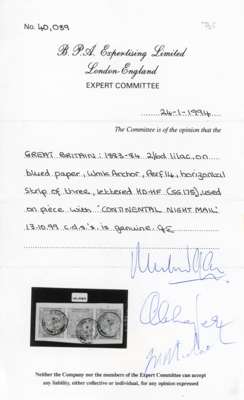 No. 40,039
B. P. A. Expertising Limited
London-England
EXPERT COMMITTEE
24-1-1994
The Committee is of the opinion that the
GREAT BRITAIN: 1883-84 2/6d lilac, on
blued paper, Wmk Anchor, Perf.14, horizontal
Strip of three, lettered HD-HF (SG 175), used
on piece with "CONTINENTAL NIGHT MAIL"
13.10.99 c.d.s's. is genuine.
40,039
Neither the Company nor the members of the Expert Committee can accept
any liability, either collective or individual, for any opinion expressed